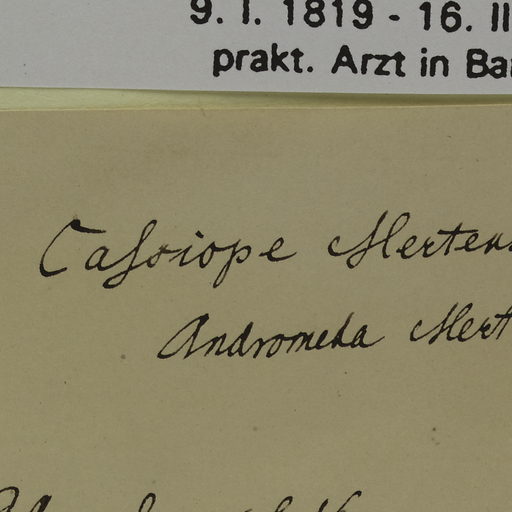 9. I. 1819 - 16. II
prakt. Arzt in Ba
Cassiope Mertens
Andromeda Mert